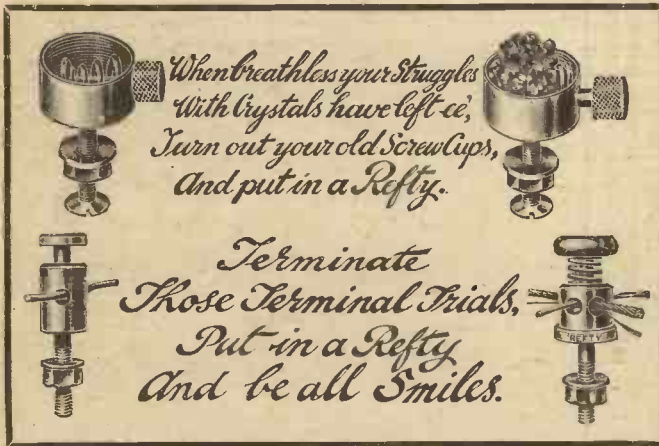 When breathless your Struggles
With Crystals have left-ee,
Turn out your old Screw Cups,
And put in a Refty.
Terminate
Those Terminal Trials,
Put in a Refty
And be all Smiles.
"REFTY"